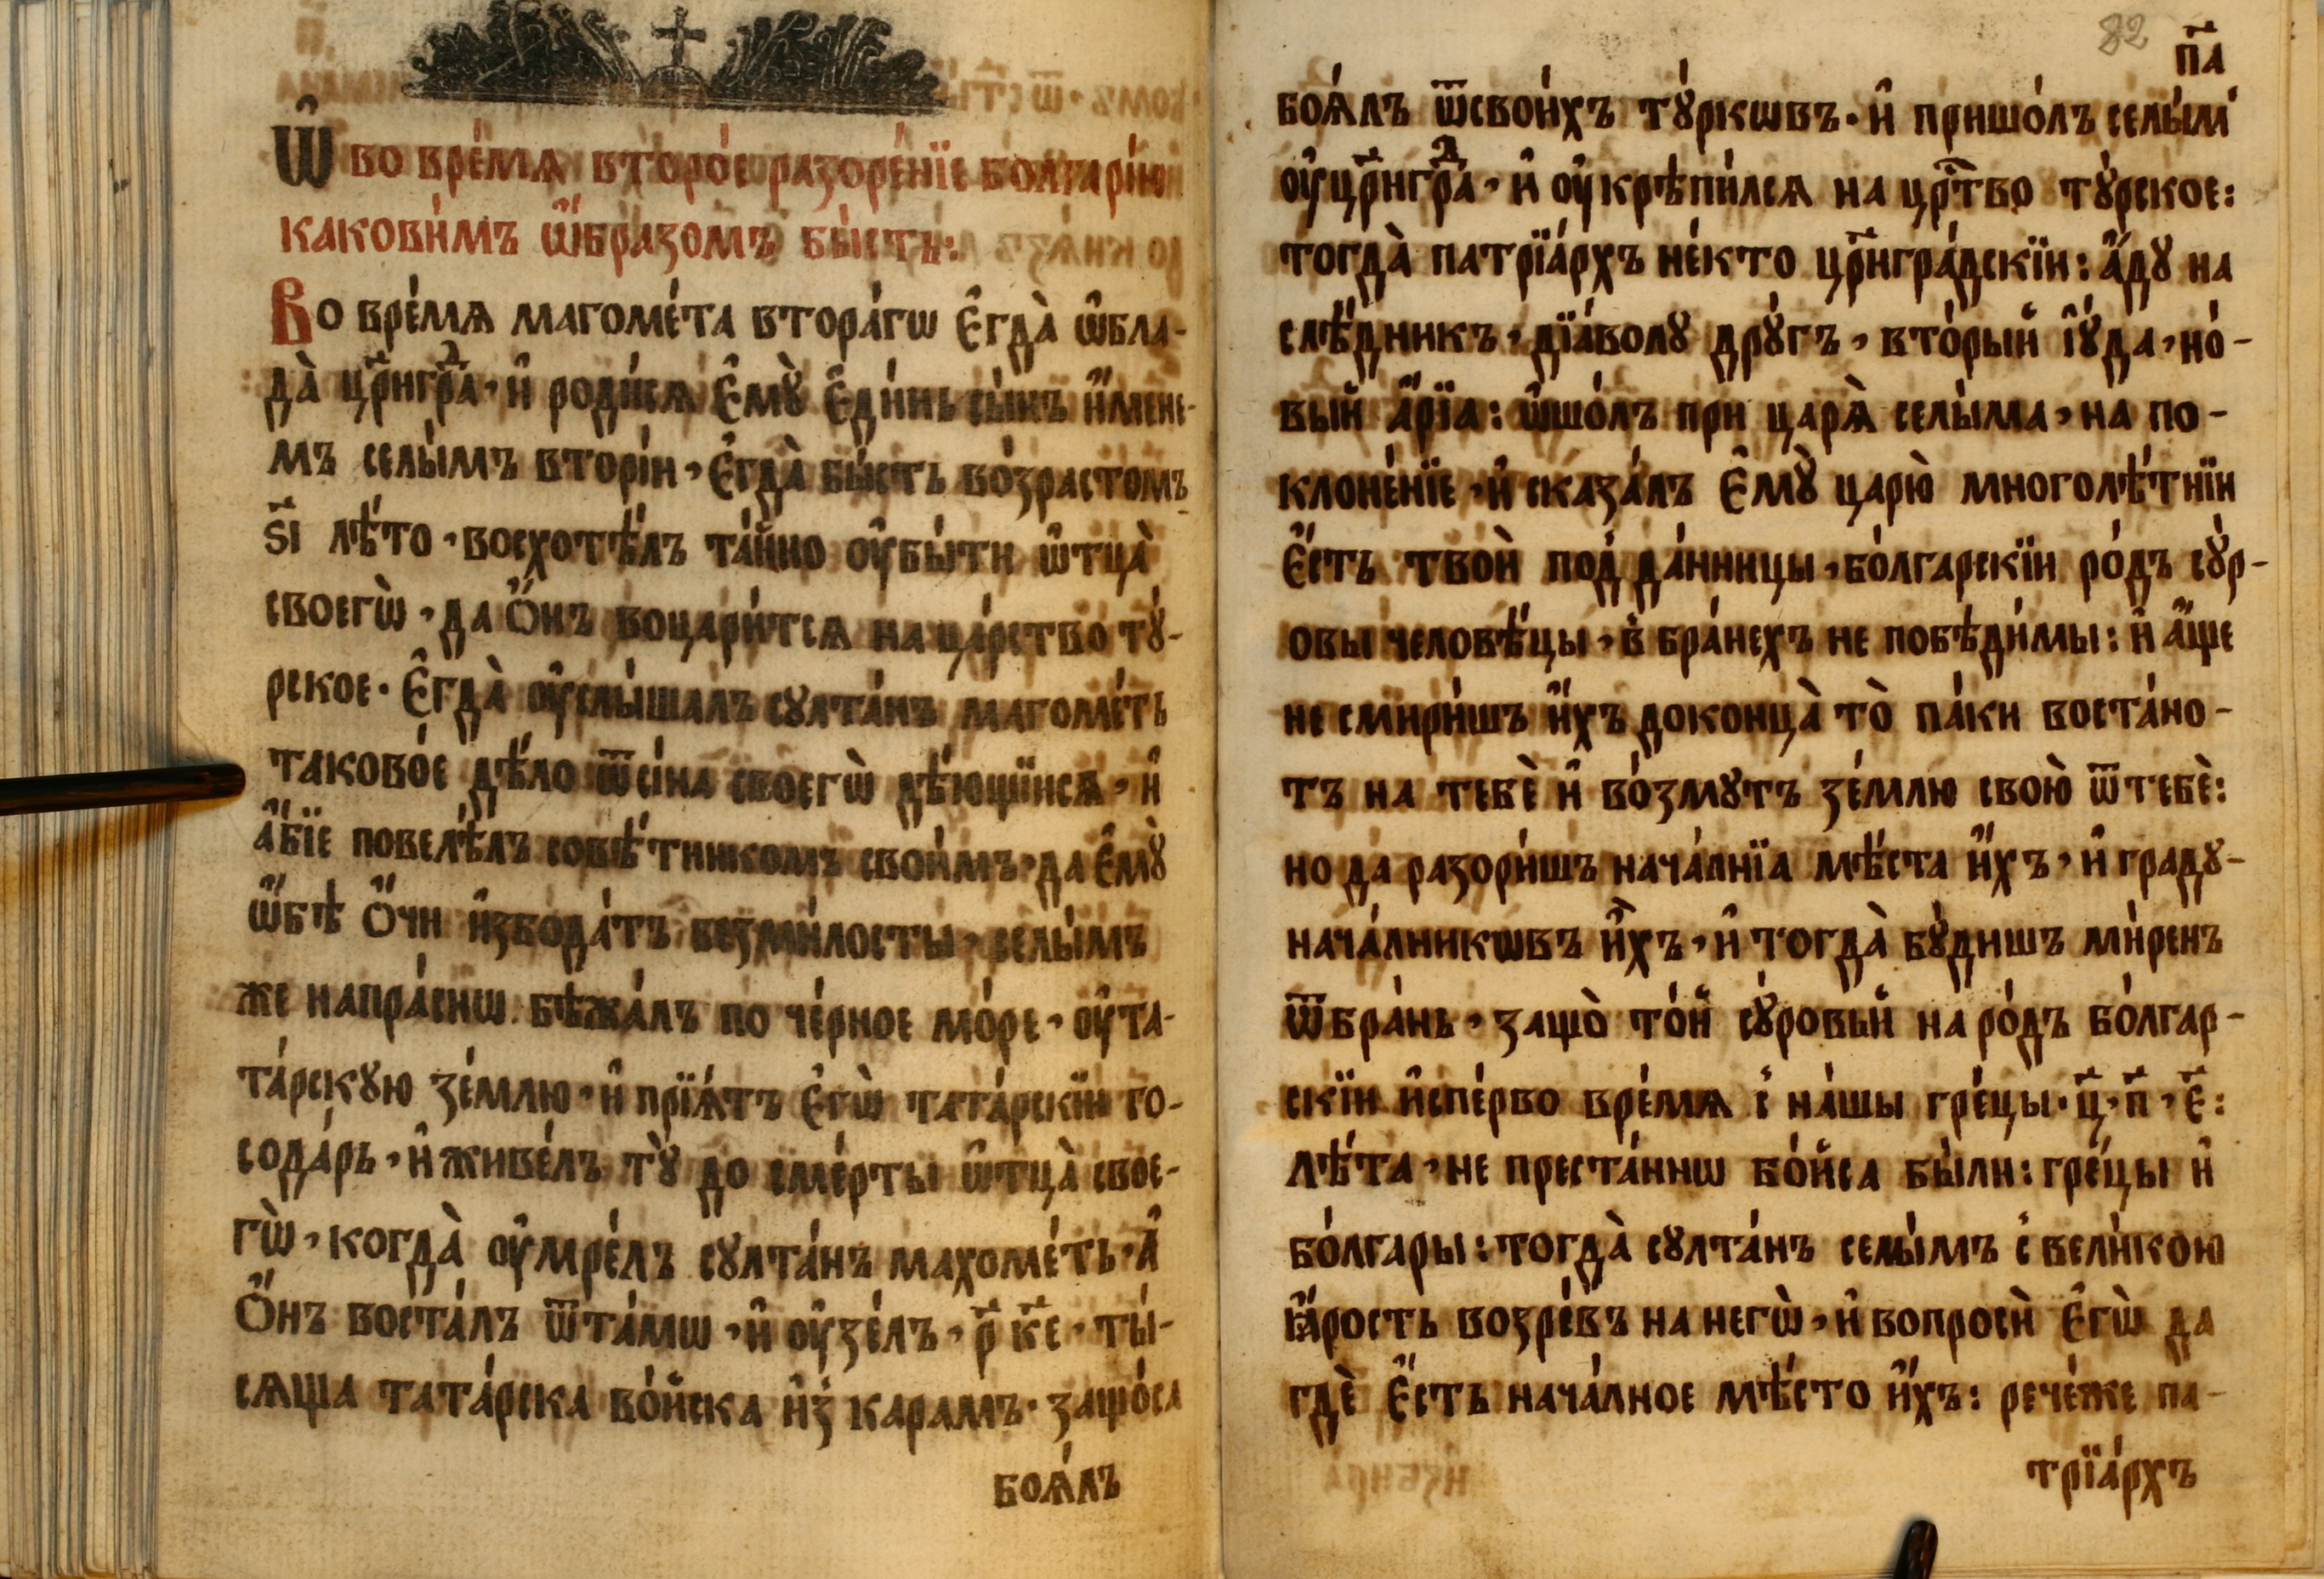 Ѽ во вре́мѧ второ́е разоре́нїе болгарі́ю
какови́мъ ѡ҆́бразомъ бы́сть:
Во вре́мѧ магоме́та втора́гѡ є҆гда̀ ѡ҆бла-
да̀ цр҃нигра́д, и҆ роди́сѧ є҆мꙋ̀ є҆ди́нь сы́нъ и҆́мене-
мъ селы́мъ вторі́и, є҆гда̀ бы́сть во́зрастомъ
ѕ҃і лѣ́то, восхотѣ́лъ та́йно ᲂу҆бы́ти ѻ҆тца̀
своегѡ̀, да ѻ҆́нъ воцари́тсѧ на ца́рство тꙋ́-
рское. є҆гда̀ ᲂу҆слы́шалъ сꙋлта́нъ магоме́ть
таково́е дѣ́ло ѿсі́на своегѡ̀ дѣ́ющїисѧ, и҆
а҆́бїе повелѣ́лъ совѣ́тникомъ свои́мъ, да є҆мꙋ̀
ѡ҆́бѣ ѻ҆́чи и҆звода́тъ безми́лосты, селы́мъ
же напра́снѡ бѣжа́лъ по че́рное мо́ре, ᲂу҆та-
та́рскꙋю зе́млю, и҆ прїѧ́тъ є҆гѡ̀ тата́рскїи го-
сода́рь, и҆ живе́лъ тꙋ̀ до сме́рты ѻ҆тца̀ свое-
гѡ̀, когда̀ ᲂу҆мре́лъ сꙋлта́нъ махоме́ть, а҆
ѻ҆́нъ воста́лъ ѿта́мѡ, и҆ ᲂу҆зе́лъ, р҃ к҃е, ты́-
сѧща тата́рска во́йска и҆з̾ карамъ. защо́са
боѧ́лъ
82
п҃а
боѧ́лъ ѿсвои́хъ тꙋ́ркѡвъ, и҆ пришо́лъ селы́м
ᲂу҆цр҃нигра́д, и҆ ᲂу҆крѣпи́лсѧ на цр҃тво тꙋ́рское:
тогда̀ патрїа́рхъ не́кто цр҃нигра́дскїи: а҆́дꙋ на
слѣ́дникъ, дїа́волꙋ дрꙋ́гъ, вто́рый і҆ꙋ́да, но́-
вый а҆́рїа: ѡ҆шо́лъ при царѧ̀ селы́ма, на по-
клоне́нїе, и҆ сказа́лъ є҆мꙋ̀ царю̀ многолѣ́тнїи
є҆́сть твоѝ под̾ да́нницы, бо́лгарскїи ро́дъ сꙋ́р-
овы человѣ́цы, в̾ бра́нехъ не побѣди́мы: и҆ а҆́ще
не смири́шъ и҆́хъ доконца̀ то̀ па́ки воста́но-
тъ на тебѐ и҆ во́змꙋтъ зе́млю свою̀ ѿтебѐ:
но да разори́шъ нача́лнїа мѣ́ста и҆́хъ, и҆ градꙋ-
нача́лникѡвъ и҆́хъ, и҆ тогда̀ бꙋ́дишъ ми́ренъ
ѿбра́нь, защо̀ то́й сꙋ́ровый на ро́дъ бо́лгар-
скїи и҆спе́рво вре́мѧ с̾ на́шы гре́цы. ц҃, п҃, є҃:
лѣ́та, не преста́ннѡ бо́йса бы́ли: гре́цы и҆
бо́лгары: тогда̀ сꙋлта́нъ селы́мъ с̾ вели́кою
ꙗ҆́рость возре́въ на негѡ̀, и҆ вопросѝ є҆гѡ̀ да
гдѐ є҆́сть нача́лное мѣ́сто и҆́хъ: рече́же па-
трїа́рхъ